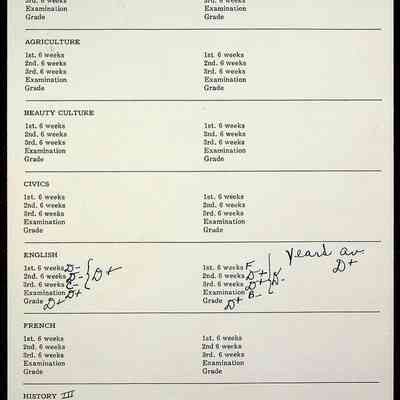 3rd. 6 weeks 3rd. 6 weeks
Examination Examination
Grade Grade
AGRICULTURE
1st. 6 weeks 1st. 6 weeks
2nd. 6 weeks 2nd. 6 weeks
3rd. 6 weeks 3rd. 6 weeks
Examination Examination
Grade Grade
BEAUTY CULTURE
1st. 6 weeks 1st. 6 weeks
2nd. 6 weeks 2nd. 6 weeks
3rd. 6 weeks 3rd. 6 weeks
Examination Examination
Grade Grade
CIVICS
1st. 6 weeks 1st. 6 weeks
2nd. 6 weeks 2nd. 6 weeks
3rd. 6 weeks 3rd. 6 weeks
Examination Examination
Grade Grade
ENGLISH
1st. 6 weeks D- 1st. 6 weeks F Years av.
2nd. 6 weeks D- D+ 2nd. 6 weeks D+ D- D+
3rd. 6 weeks C- 3rd. 6 weeks D+
Examination D+ Examination B-
Grade D+ Grade D+
FRENCH
1st. 6 weeks 1st. 6 weeks
2nd. 6 weeks 2nd. 6 weeks
3rd. 6 weeks 3rd. 6 weeks
Examination Examination
Grade Grade
HISTORY III